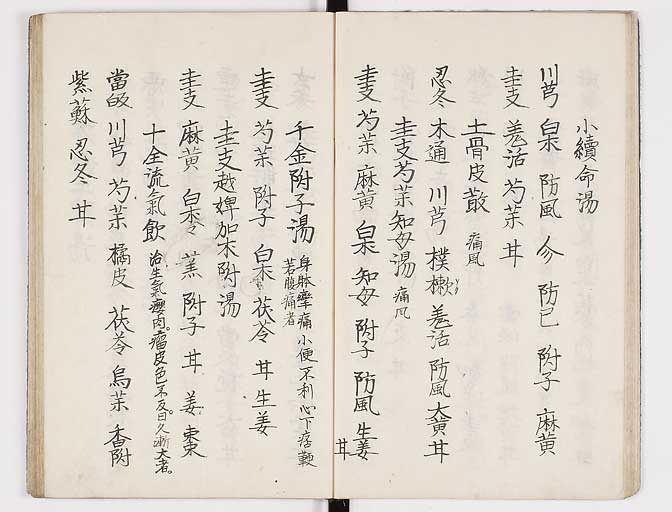 小續命湯
川芎 白朮 防風 參 防已 附子 麻黄
圭支 羌活 芍茱 廾
土骨皮散 痛風
忍冬 木通 川芎 樸樕 羌活 防風 大黄 廾
圭支芍茱知母湯 痛风
圭支 芍茱 麻黄 白朮 知母 附子 防風 生姜 廾
千金附子湯 身体攣痛小便不利心下痞鞕
若腹痛者
圭支 芍茱 附子 白朮 茯苓 廾 生姜
圭支越婢加朮附湯
圭支 麻黄 白朮 羔 附子 廾 姜 棗
十全流氣飲 治生氣癭肉。瘤皮色不反日久漸大者。
當皈 川芎 芍茱 橘皮 茯苓 烏茱 香附
紫蘇 忍冬 廾